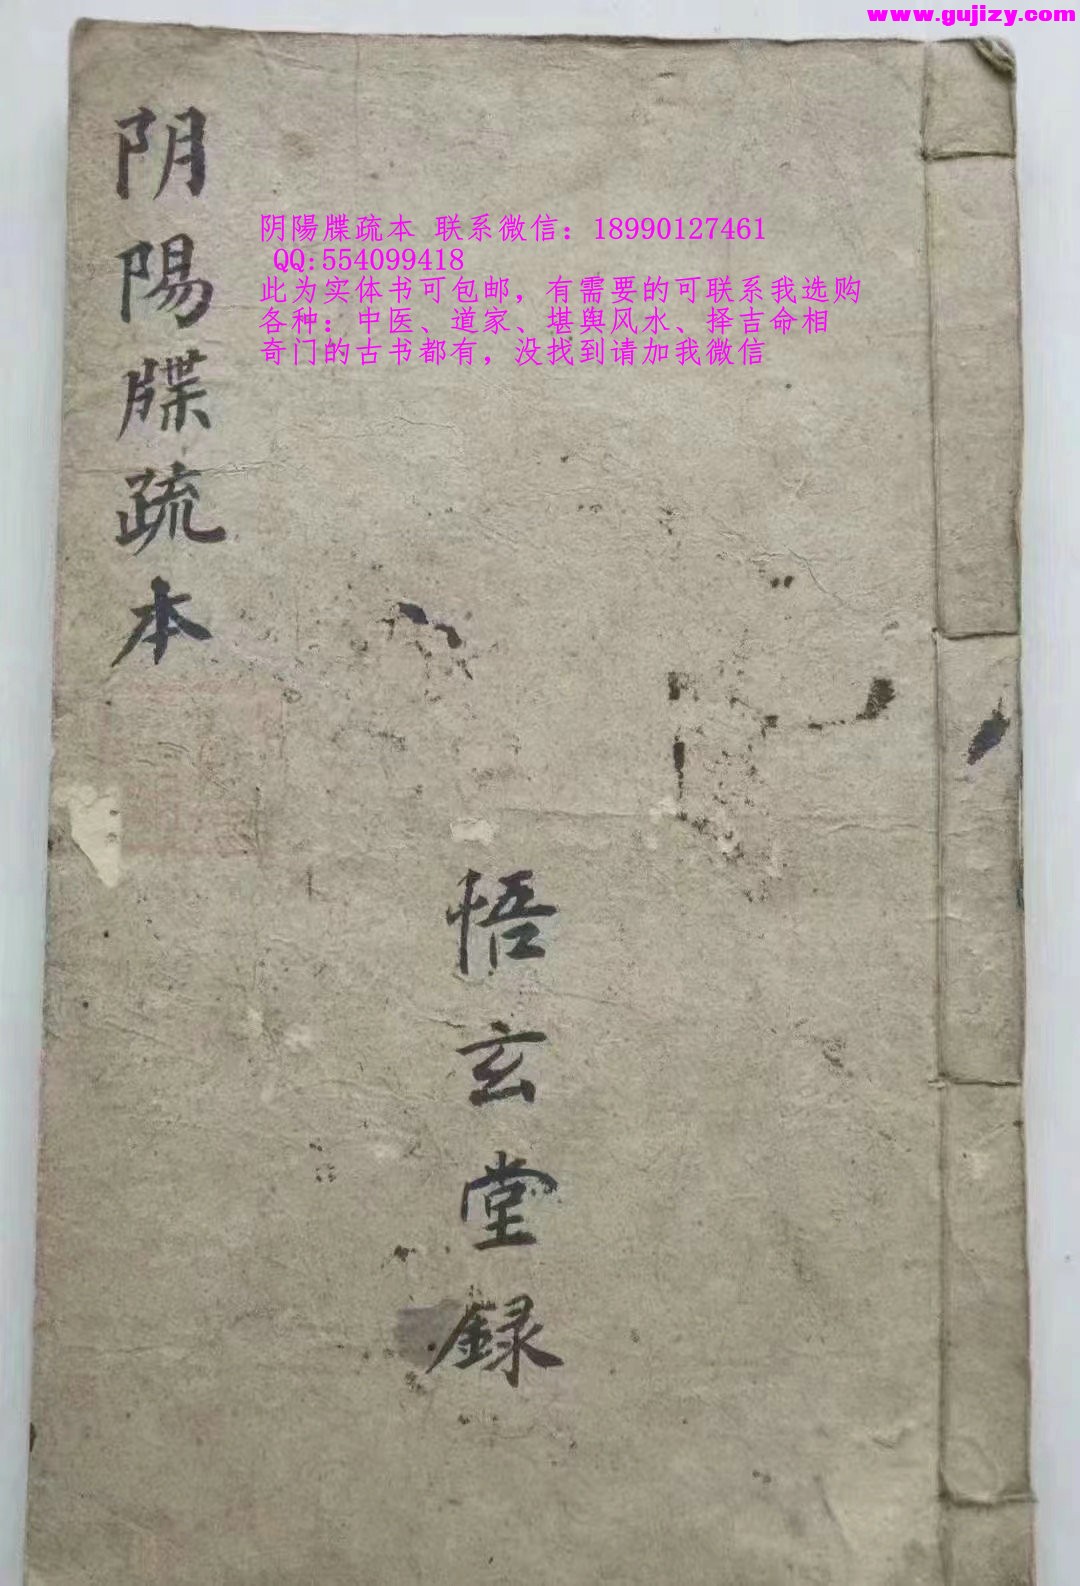 www.gujizy.com
阴陽牒疏本
阴陽牒疏本 联系微信：18990127461
QQ:554099418
此为实体书可包邮，有需要的可联系我选购
各种：中医、道家、堪舆风水、择吉命相
奇门的古书都有，没找到请加我微信
悟玄堂録